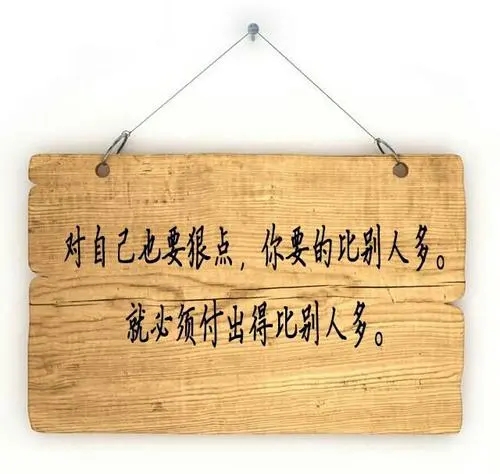 对自己也要狠点，你要的比别人多。
就必须付出得比别人多。